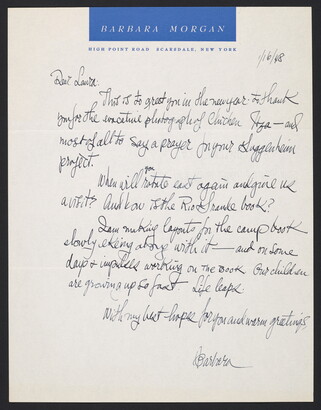 BARBARA MORGAN
HIGH POINT ROAD SCARSDALE, NEW YORK
1/16/48
Dear Laura:
This is to greet you in the new year: to thank
you for the evocative photograph of Chichen Itza — and
most of all to say a prayer for your Guggenheim
project.
When will you rotate east again and give us
a visit? And how is the Rio Grande book?
I am making layouts for the camp book
slowly ekeing along with it — and on some
days + impulses working on the book. Our children
are growing up so fast. Life leaps.
With my best hopes for you and warm greetings,
Barbara